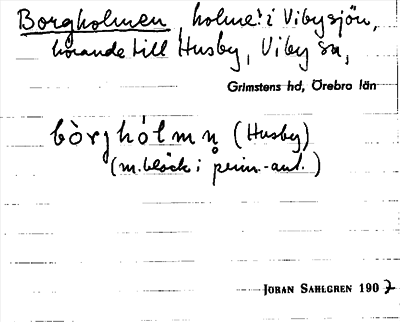 Borgholmen, holme i Vibysjön,
hörande till Husby, Viby sn,
Grimstens hd, Örebro län
bòrghólmn̥ (Husby)
(m. bläck i prim.-ant.)
JOHAN SAHLGREN 1907